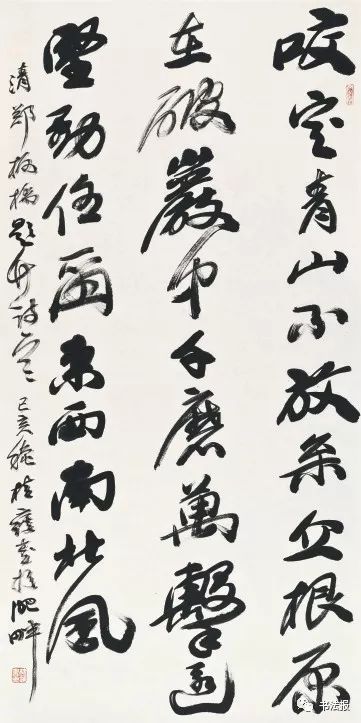 咬定青山不放松立根原
在破巖中千磨萬擊還
堅勁任爾東西南北風
清鄭板橋題竹詩 己亥 於肥畔
书法报